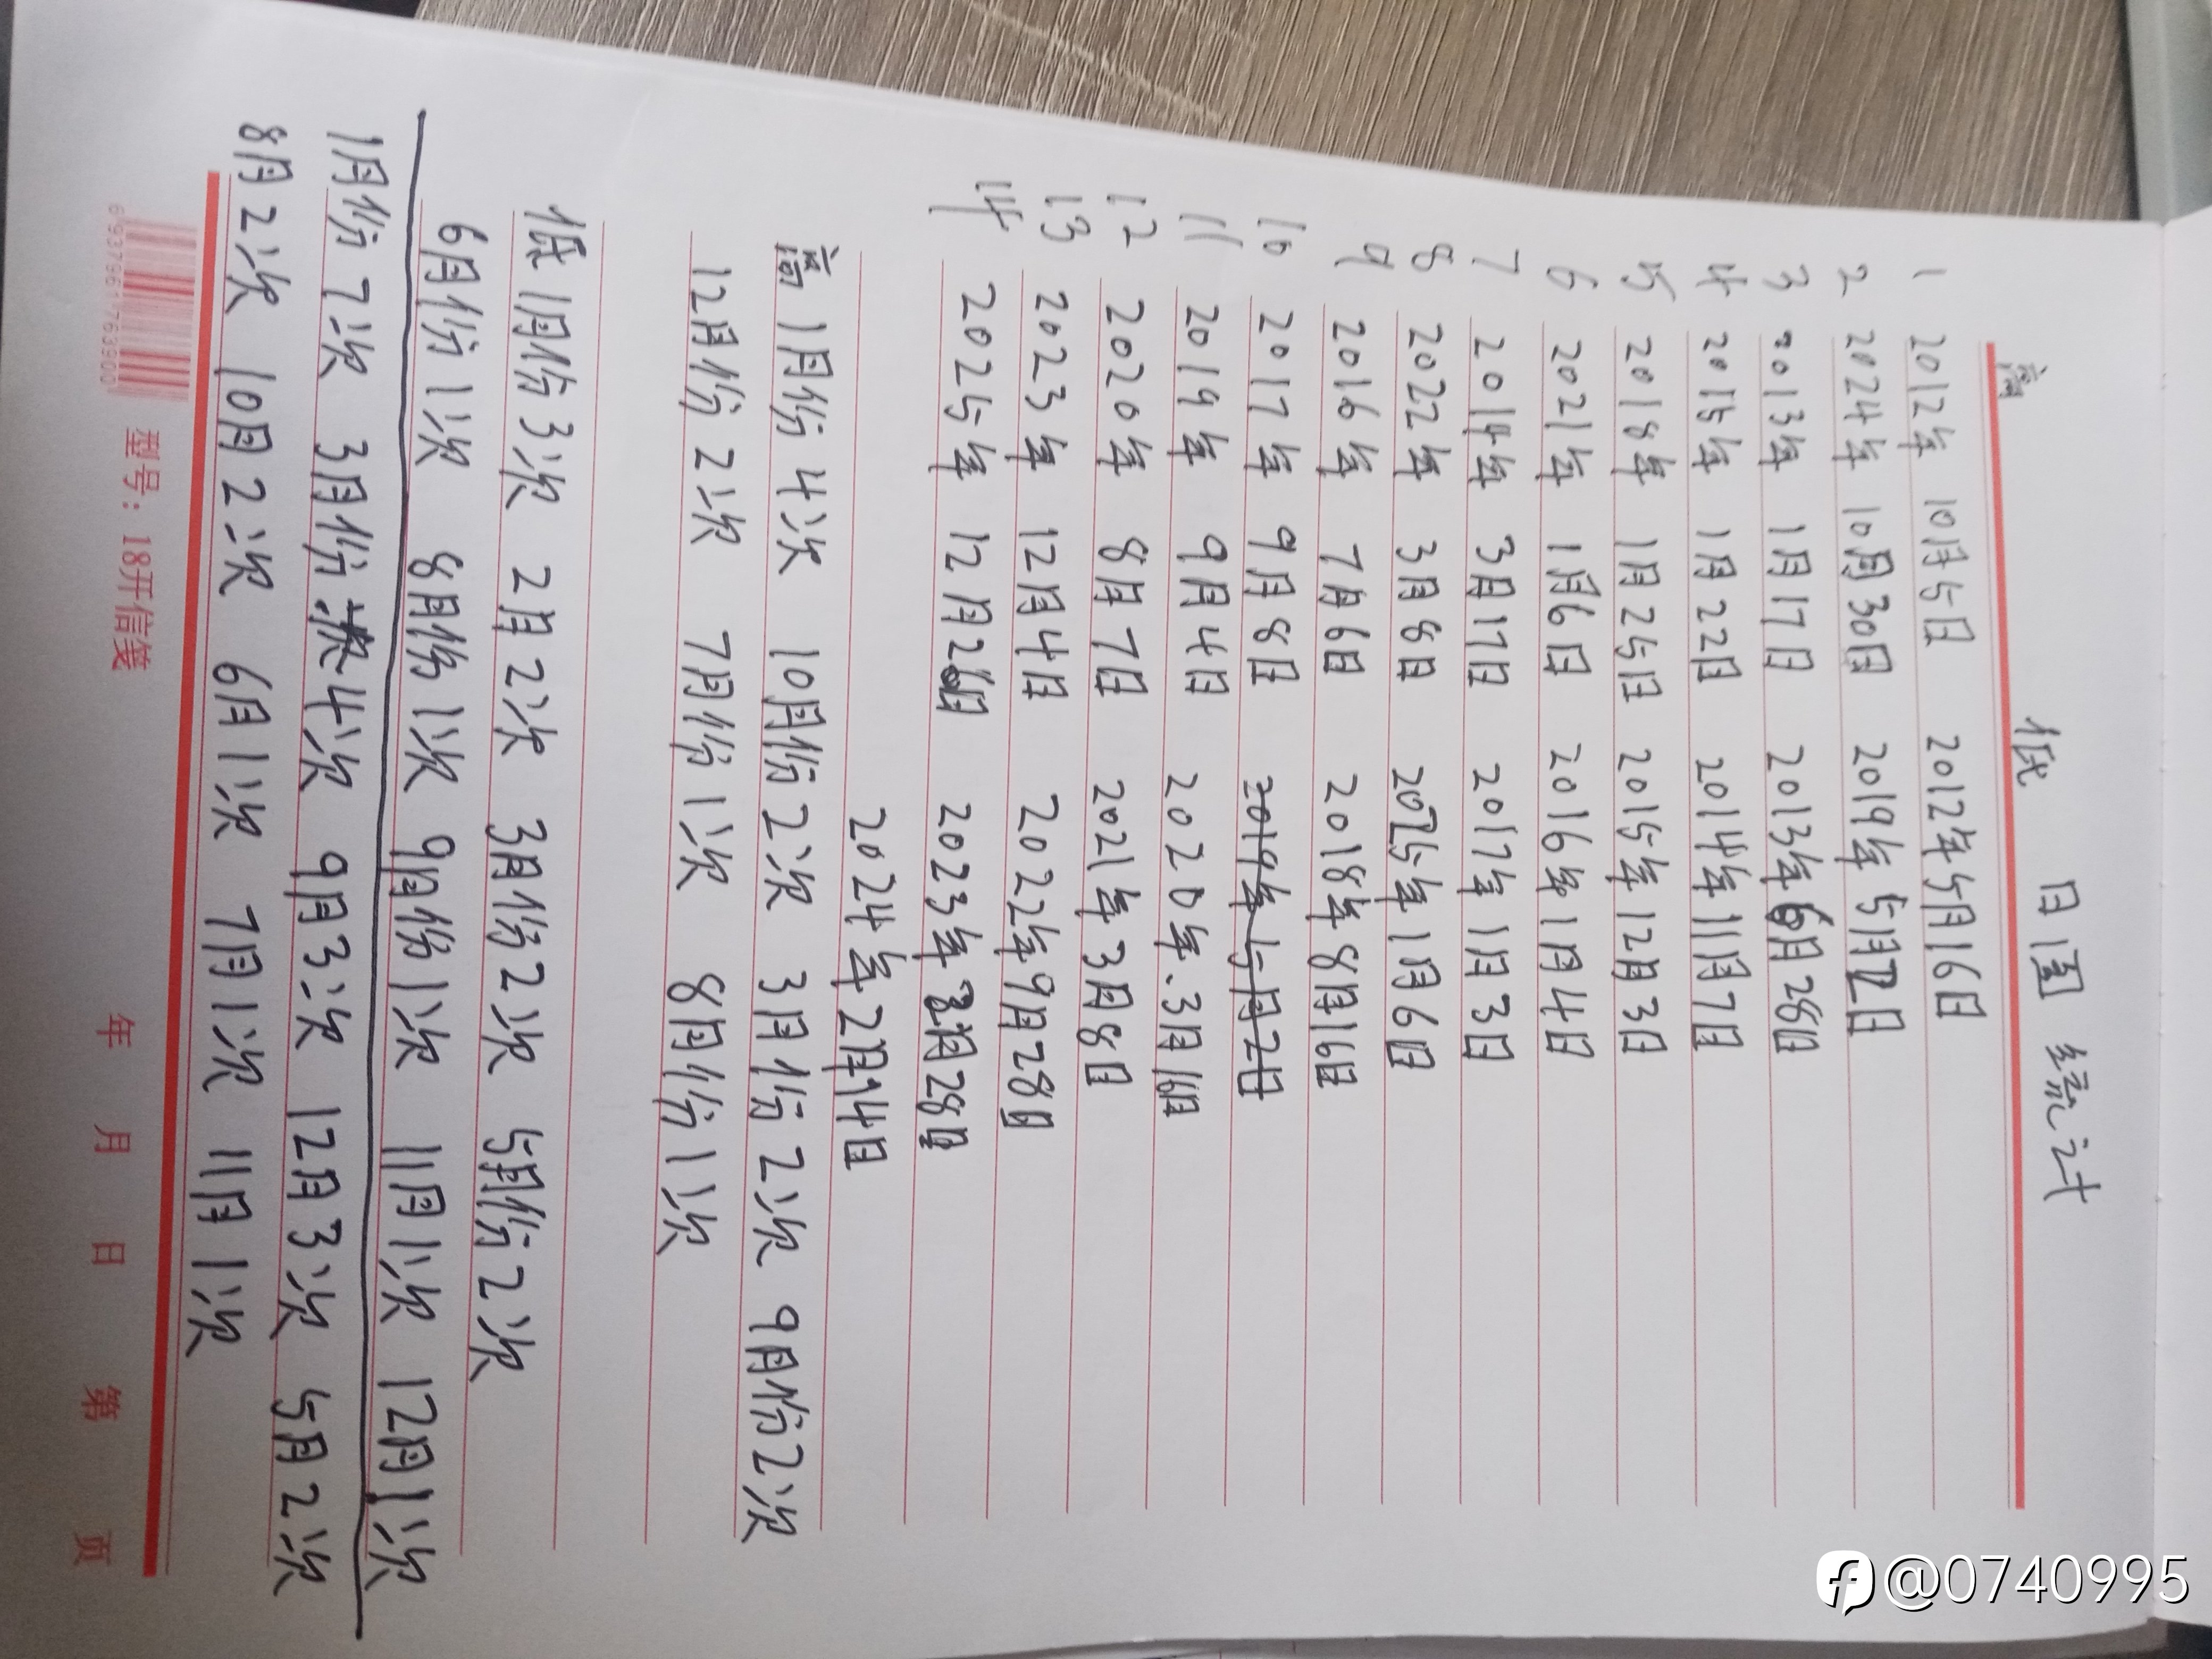 低 日圆 统计
高
1 2012年 10月5日 2012年5月16日
2 2024年 10月30日 2019年5月2日
3 2013年 1月17日 2013年6月28日
4 2015年 1月22日 2014年11月7日
5 2018年 1月25日 2015年12月3日
6 2021年 1月6日 2016年1月4日
7 2014年 3月17日 2017年1月3日
8 2022年 3月8日 2025年1月6日
9 2016年 7月6日 2018年8月16日
10 2017年 9月8日 2019年5月2日
11 2019年 9月4日 2020年.3月16日
12 2020年 8月7日 2021年3月8日
13 2023年 12月4日 2022年9月28日
14 2025年 12月26日 2023年2月28日
2024年2月14日
高 1月份4次 10月份2次 3月份2次 9月份2次
12月份2次 7月份1次 8月份1次
低 1月份3次 2月2次 3月份2次 5月份2次
6月份1次 8月份1次 9月份1次 11月1次 12月1次
1月份7次 3月份4次 9月3次 12月3次 5月2次
8月2次 10月2次 6月1次 7月1次 11月1次
型号：18开信笺 年 月 日 第 页
6937961763900
@0740995